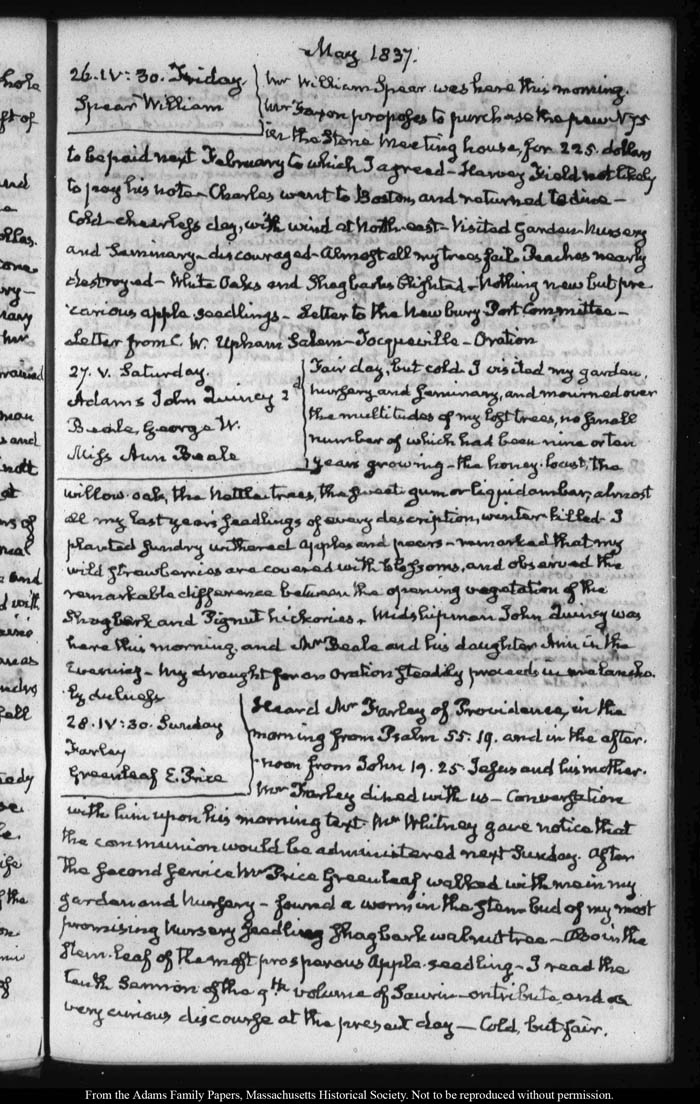 May 1837.
26. IV: 30. Friday.
Spear William
Mr William Spear was here this morning.
Mr Faxon proposes to purchase the pew N. 75
in the Stone Meeting house, for 225. dollars
to be paid next February to which I agreed – Harvey Field not likely
to pay his note – Charles went to Boston, and returned to dine –
Cold – cheerless day, with wind at North-east – Visited Garden – Nursery
and Seminary – discouraged – Almost all my trees fail. Peaches nearly
destroyed – White Oaks and Shagbarks blighted – Nothing new but pre
carious apple seedlings – Letter to the Newbury Port Committee –
Letter from C. W. Upham Salem – Tocqueville – Oration
27. V. Saturday.
Adams John Quincy 2d
Beale, George W.
Miss Ann Beale
Fair day, but cold. I visited my garden,
nursery and Seminary, and mourned over
the multitudes of my lost trees, no small
number of which had been nine or ten
years growing – the honey-locust, the
willow-oak, the Nettle trees, the sweet-gum or liquidambar, almost
all my last year's seedlings of every description, winter killed – I
planted sundry withered apples and pears – remarked that my
wild strawberries are covered with blossoms, and observed the
remarkable difference between the opening vegetation of the
Shagbark and Pignut hickories. Midshipman John Quincy was
here this morning, and Mr Beale and his daughter Ann in the
Evening – My draught for an Oration steadily proceeds in melancho.
ly dulness
28. IV: 30. Sunday
Farley
Greenleaf E. Price
Heard Mr Farley of Providence, in the
morning from Psalm 55. 19. and in the after.
noon from John 19. 25. Jesus and his mother.
Mr Farley dined with us – Conversation
with him upon his morning text. Mr Whitney gave notice that
the communion would be administered next Sunday. After
the second service Mr Price Greenleaf walked with me in my
garden and nursery – found a worm in the stem bud of my most
promising Nursery seedling Shagbark walnut tree – Also in the
stem-leaf of the most prosperous apple-seedling – I read the
tenth Sermon of the 9th volume of Saurin – on tribute, and a
very curious discourse at the present day – Cold, but fair.
From the Adams Family Papers, Massachusetts Historical Society. Not to be reproduced without permission.